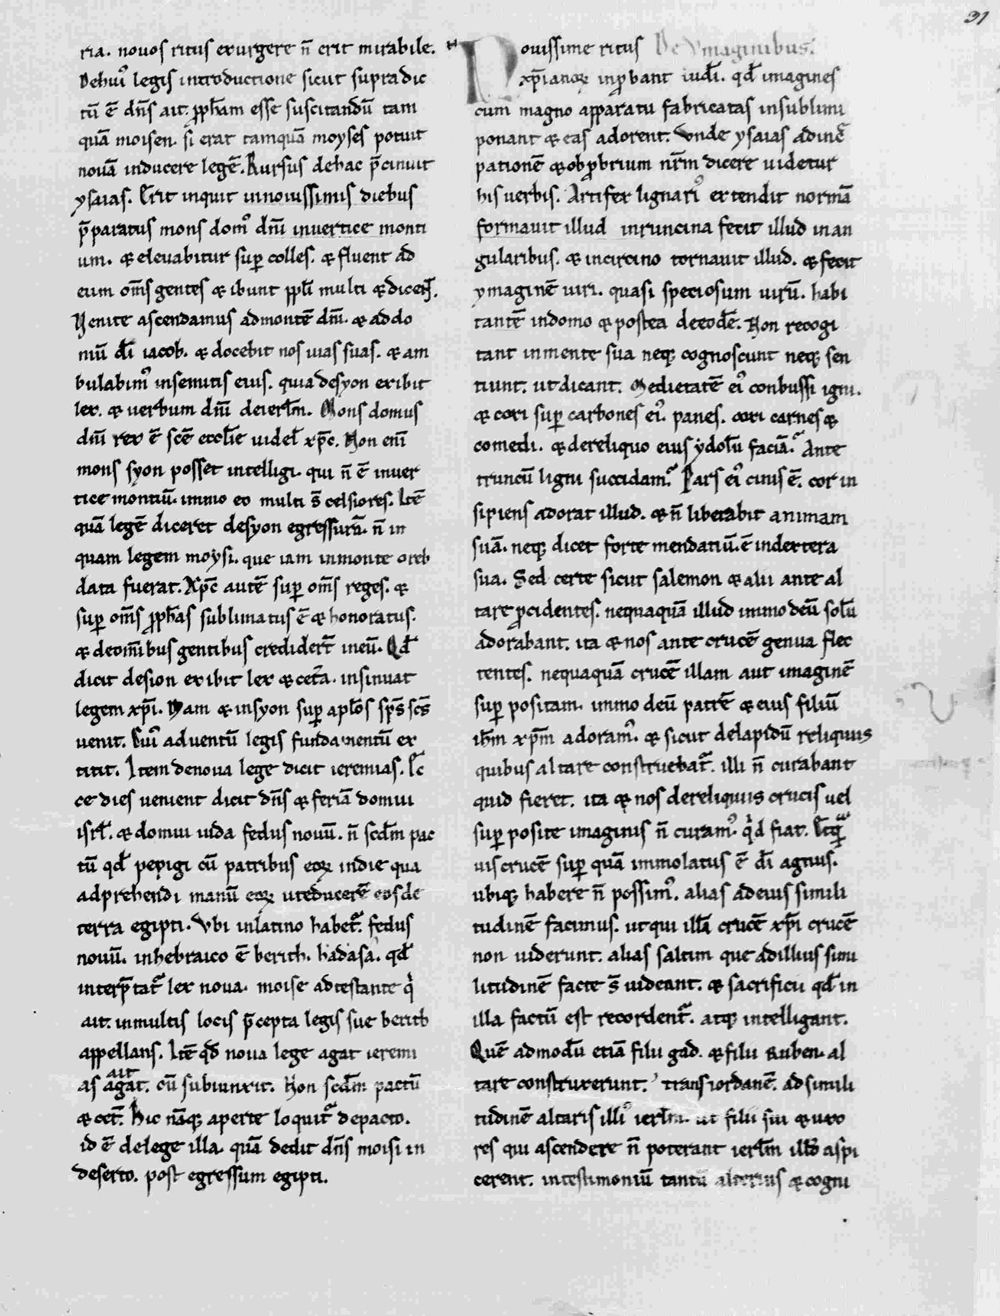 31
ria. nouos ritus exurgere n̄ erit mirabile.
Dehui᾽ legis introductione sicut supradic
tū ē dn̄s ait. ꝓph̄am esse suscitandū tam
quā moisen. si erat tamquā moyses potuit
nouā inducere legē. Rursus dehac p̄cinuit
ysaias. Erit inquit innouissimis diebus
p̄paratus mons dom᾽ dn̄i inuertice monti
um. & eleuabitur suꝑ colles. & fluent ad
eum om̄s gentes & ibunt ppl̄i multi & dicent.
Venite ascendamus admontē dn̄i. & ad do
mū dī iacob. & docebit nos uias suas. & am
bulabim᾽ insemitis eius. quia desyon exibit
lex. & uerbum dn̄i deierl̄m. Mons domus
dn̄i rex ē sc̄e eccl̄ie uidel̄ xp̄c. Non enī
mons syon posset intelligi. qui n̄ ē inuer
tice montiū. immo eo multi s̄ celsiores. Itē
quā legē diceret desyon egressurā. n̄ in
quam legem moysi. que iam inmonte oreb
data fuerat. Xp̄c autē suꝑ om̄s reges. &
suꝑ om̄s ꝓph̄as sublimatus ē & honoratus.
& deom̄ibus gentibus credidert̄ ineū. Qd̄
dicit desion exibit lex & cet̄a. insinuat
legem xp̄i. Nam & insyon suꝑ apl̄os sp̄s sc̄s
uenit. Cui᾽ aduentū legis fundamentū ex
titit. Item denoua lege dicit ieremias. Ec
ce dies uenient dicit dn̄s & feriā domui
isrl̄. & domui iuda fedus nouū. n̄ scd̄m pac
tū qd̄ pepigi cū patribus eoꝝ indie qua
adprehendi manū eoꝝ uteducerē eos de
terra egipti. Vbi inlatino habet᷑ fedus
nouū. inhebraico ē berith. hadasa. qd̄
interp̄tat᷑ lex noua. moise adtestante q̇
ait. inmultis locis p̄cepta legis sue berith
appellans. Itē qd̄ noua lege agat ieremi
as ait agat. cū subiunxit. Non scd̄m pactū
& cet̄. Hic nāq; aperte loquit᷑ depacto.
id ē de lege illa. quā dedit dn̄s moisi in
deserto. post egressum egipti.
Nouissime ritus De Ymaginibus.
xp̄ianoꝝ inꝓbant iudī. qd̄ imagines
cum magno apparatu fabricatas insublimi
ponant & eas adorent. Vnde ysaias adinē
pationē & obꝓbrium nr̄m dicere uidetur
his uerbis. Artifex lignari᾽ extendit normā
formauit illud inruncina fecit illud inan
gularibus. & incircino tornauit illud. & fecit
ymaginē uiri. quasi speciosum uirū. habi
tantē indomo & postea deeodē. Non recogi
tant inmente sua neq; cognoscunt neq; sen
tiunt. ut dicant. Medietatē ei᾽ conbussi igni.
& coxi suꝑ carbones ei᾽. panes. coxi carnes &
comedi. & dereliquo eius ydolū faciā. Ante
truncū ligni succidam. Pars ei᾽ cinis ē. cor in
sipiens adorat illud. & n̄ liberabit animam
suā. neq; dicet forte mendatiū ē indextera
sua. Sed certe sicut salemon & alii ante al
tare ꝓcidentes. nequaquā illud immo deū solū
adorabant. ita & nos ante crucē genua flec
tentes. nequaquā crucē illam aut imaginē
suꝑ positam. immo deū patrē & eius filiū
ih̄m xp̄m adoram᾽. & sicut delapidū reliquiis
quibus altare construebat᷑. illi n̄ curabant
quid fieret. ita & nos dereliquiis crucis uel
suꝑ posite imaginis n̄ curam᾽ qd̄ fiat.
uis crucē suꝑ quā immolatus ē dī agnus.
ubiq; habere n̄ possim᾽. alias adeius simili
tudinē facimus. utqui illā crucē xp̄i crucē
non uiderunt. alias saltim que adillius simi
litudinē facte s̄ uideant. & sacrificii qd̄ in
illa factū est recordent᷑. atq; intelligant.
Quē admodū etiā filii gad. & filii Ruben. al
tare construxerunt. transiordanē. ad simili
tudinē altaris illi᾽ ierl̄m. ut filii sui & uxo
res qui ascendere n̄ poterant ierl̄m illd̄ aspi
cerent. intestimoniū tantū alterius & cogni